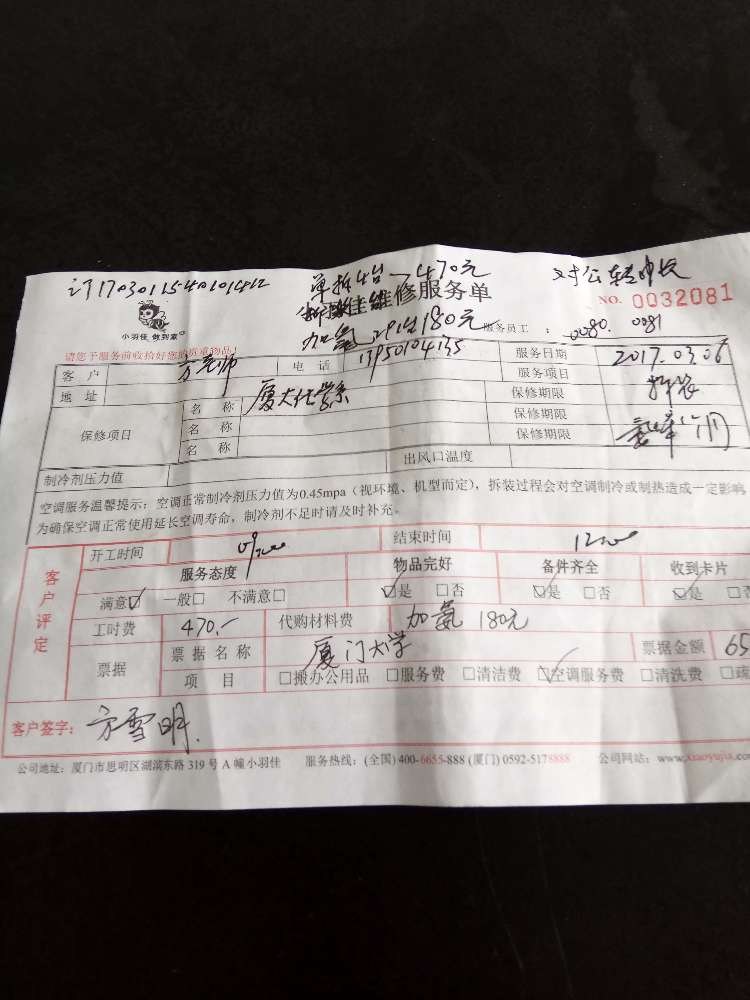 订17030115401014112 单拆4台 470元 对公转账
维修服务单 NO. 0032081
小羽佳 做到家
加氟 180元 服务员工： 0080. 0081
请您于服务前收拾好您的贵重物品！
客户 方老师 电话 13950104135 服务日期 2017.03.06
地址 服务项目 拆装
保修项目 名称 厦大化学系 保修期限
名称 保修期限
名称 保修期限
制冷剂压力值 出风口温度
空调服务温馨提示：空调正常制冷剂压力值为0.45mpa（视环境、机型而定），拆装过程会对空调制冷或制热造成一定影响
为确保空调正常使用延长空调寿命，制冷剂不足时请及时补充。
客户评定 开工时间 结束时间
服务态度 物品完好 备件齐全 收到卡片
满意☑ 一般□ 不满意□ ☑是 □否 ☑是 □否 ☑是 □否
工时费 470.- 代购材料费 加氟 180元
票据 票据名称 厦门大学 票据金额 65
项目 □搬办公用品 □服务费 □清洁费 ☑空调服务费 □清洗费 □疏
客户签字： 方雪明
公司地址：厦门市思明区湖滨东路 319 号 A 幢小羽佳 服务热线：(全国) 400-6655-888 (厦门) 0592-5178888 公司网站：www.xiaoyujia.com